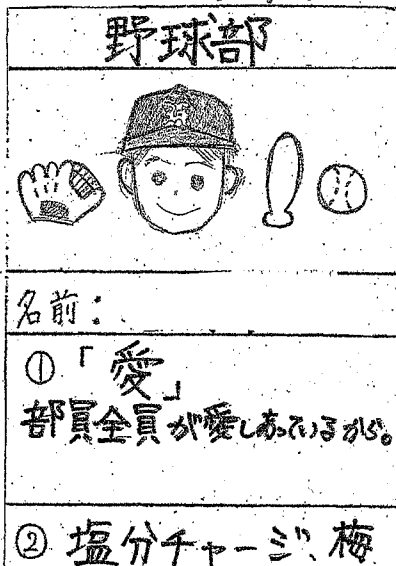 野球部
名前：
①「愛」
部員全員が愛しあっているから。
② 塩分チャージ、梅